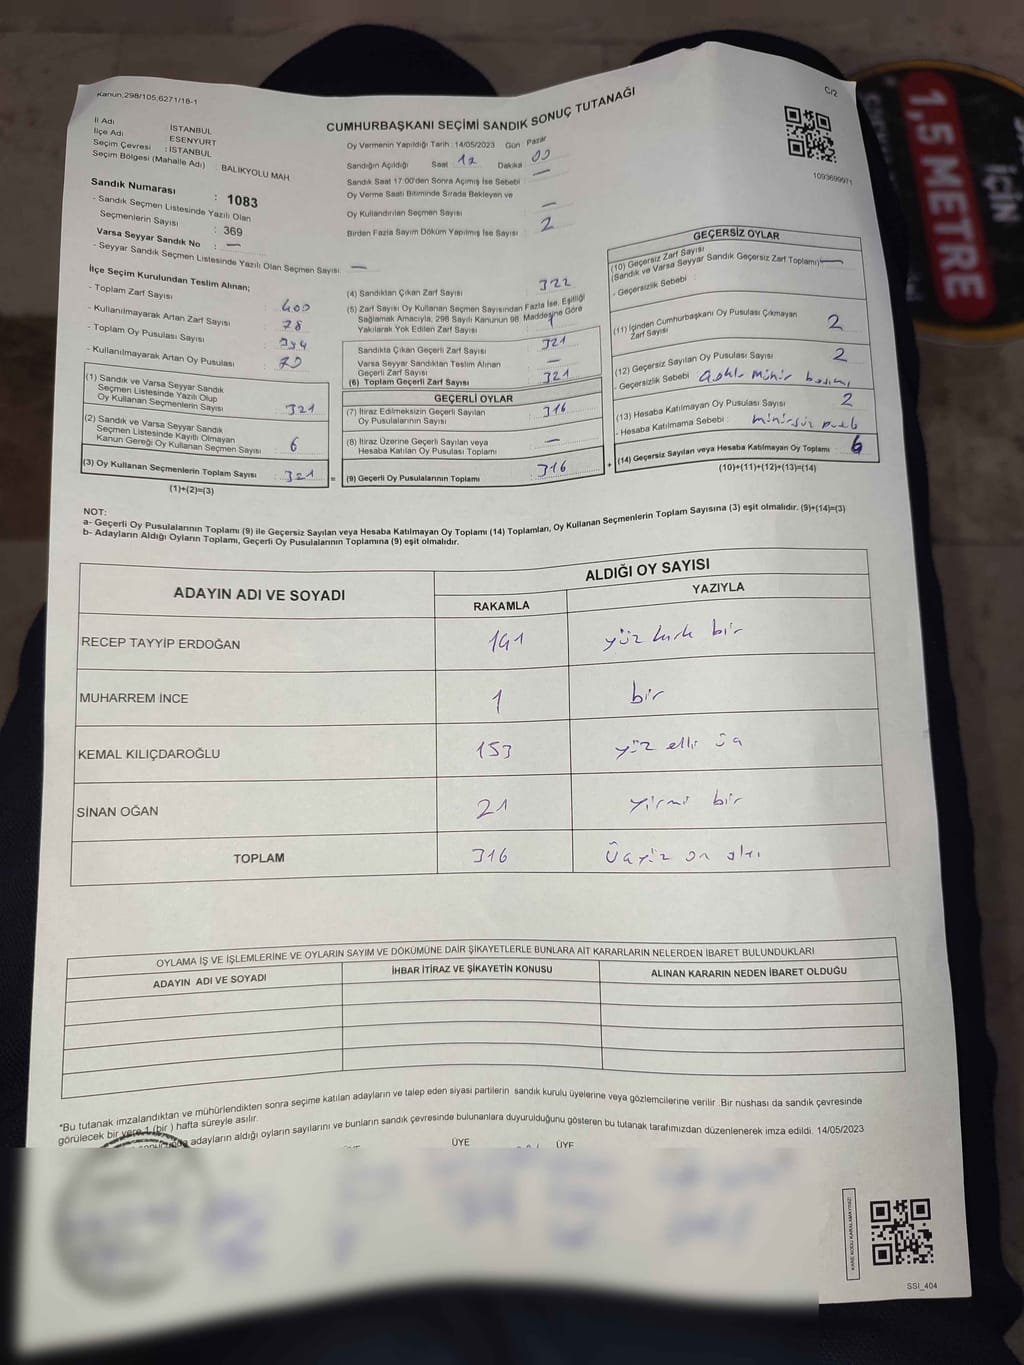 Kanun;298/105;6271/18-1
C/2
CUMHURBAŞKANI SEÇİMİ SANDIK SONUÇ TUTANAĞI
İl Adı İSTANBUL
İlçe Adı ESENYURT
Seçim Çevresi : İSTANBUL
Seçim Bölgesi (Mahalle Adı) : BALIKYOLU MAH.
Sandık Numarası : 1083
- Sandık Seçmen Listesinde Yazılı Olan
Seçmenlerin Sayısı : 369
Varsa Seyyar Sandık No : —
- Seyyar Sandık Seçmen Listesinde Yazılı Olan Seçmen Sayısı : —
Oy Vermenin Yapıldığı Tarih : 14/05/2023 Gün Pazar
Sandığın Açıldığı Saat 12 Dakika 00
Sandık Saat 17:00'den Sonra Açılmış İse Sebebi : —
Oy Verme Saati Bitiminde Sırada Bekleyen ve
Oy Kullandırılan Seçmen Sayısı —
Birden Fazla Sayım Döküm Yapılmış İse Sayısı : 2
1093699971
İlçe Seçim Kurulundan Teslim Alınan;
- Toplam Zarf Sayısı : 400
- Kullanılmayarak Artan Zarf Sayısı : 78
- Toplam Oy Pusulası Sayısı : 394
- Kullanılmayarak Artan Oy Pusulası : 70
(1) Sandık ve Varsa Seyyar Sandık
Seçmen Listesinde Yazılı Olup
Oy Kullanan Seçmenlerin Sayısı : 321
(2) Sandık ve Varsa Seyyar Sandık
Seçmen Listesinde Kayıtlı Olmayan
Kanun Gereği Oy Kullanan Seçmen Sayısı : 6
(3) Oy Kullanan Seçmenlerin Toplam Sayısı : 321
(1)+(2)=(3)
(4) Sandıktan Çıkan Zarf Sayısı : 322
(5) Zarf Sayısı Oy Kullanan Seçmen Sayısından Fazla İse, Eşitliği
Sağlamak Amacıyla; 298 Sayılı Kanunun 98. Maddesine Göre
Yakılarak Yok Edilen Zarf Sayısı : 1
Sandıkta Çıkan Geçerli Zarf Sayısı : 321
Varsa Seyyar Sandıktan Teslim Alınan
Geçerli Zarf Sayısı : —
(6) Toplam Geçerli Zarf Sayısı : 321
GEÇERLİ OYLAR
(7) İtiraz Edilmeksizin Geçerli Sayılan
Oy Pusulalarının Sayısı : 316
(8) İtiraz Üzerine Geçerli Sayılan veya
Hesaba Katılan Oy Pusulası Toplamı : —
(9) Geçerli Oy Pusulalarının Toplamı : 316
GEÇERSİZ OYLAR
(10) Geçersiz Zarf Sayısı
(Sandık ve Varsa Seyyar Sandık Geçersiz Zarf Toplamı) —
- Geçersizlik Sebebi :
(11) İçinden Cumhurbaşkanı Oy Pusulası Çıkmayan
Zarf Sayısı : 2
(12) Geçersiz Sayılan Oy Pusulası Sayısı : 2
- Geçersizlik Sebebi
(13) Hesaba Katılmayan Oy Pusulası Sayısı : 2
- Hesaba Katılmama Sebebi :
(14) Geçersiz Sayılan veya Hesaba Katılmayan Oy Toplamı : 6
(10)+(11)+(12)+(13)=(14)
NOT:
a- Geçerli Oy Pusulalarının Toplamı (9) ile Geçersiz Sayılan veya Hesaba Katılmayan Oy Toplamı (14) Toplamları, Oy Kullanan Seçmenlerin Toplam Sayısına (3) eşit olmalıdır. (9)+(14)=(3)
b- Adayların Aldığı Oyların Toplamı, Geçerli Oy Pusulalarının Toplamına (9) eşit olmalıdır.
ADAYIN ADI VE SOYADI
ALDIĞI OY SAYISI
RAKAMLA YAZIYLA
RECEP TAYYİP ERDOĞAN 141 yüz kırk bir
MUHARREM İNCE 1 bir
KEMAL KILIÇDAROĞLU 153 yüz elli üç
SİNAN OĞAN 21 yirmi bir
TOPLAM 316 Üçyüz on altı
OYLAMA İŞ VE İŞLEMLERİNE VE OYLARIN SAYIM VE DÖKÜMÜNE DAİR ŞİKAYETLERLE BUNLARA AİT KARARLARIN NELERDEN İBARET BULUNDUKLARI
ADAYIN ADI VE SOYADI İHBAR İTİRAZ VE ŞİKAYETİN KONUSU ALINAN KARARIN NEDEN İBARET OLDUĞU
*Bu tutanak imzalandıktan ve mühürlendikten sonra seçime katılan adayların ve talep eden siyasi partilerin sandık kurulu üyelerine veya gözlemcilerine verilir Bir nüshası da sandık çevresinde
görülecek bir yere 1 (bir ) hafta süreyle asılır.
adayların aldığı oyların sayılarını ve bunların sandık çevresinde bulunanlara duyurulduğunu gösteren bu tutanak tarafımızdan düzenlenerek imza edildi. 14/05/2023
ÜYE ÜYE
KARE KODU KARALAMAYINIZ!
SSI_404
1,5 METRE
İÇİN